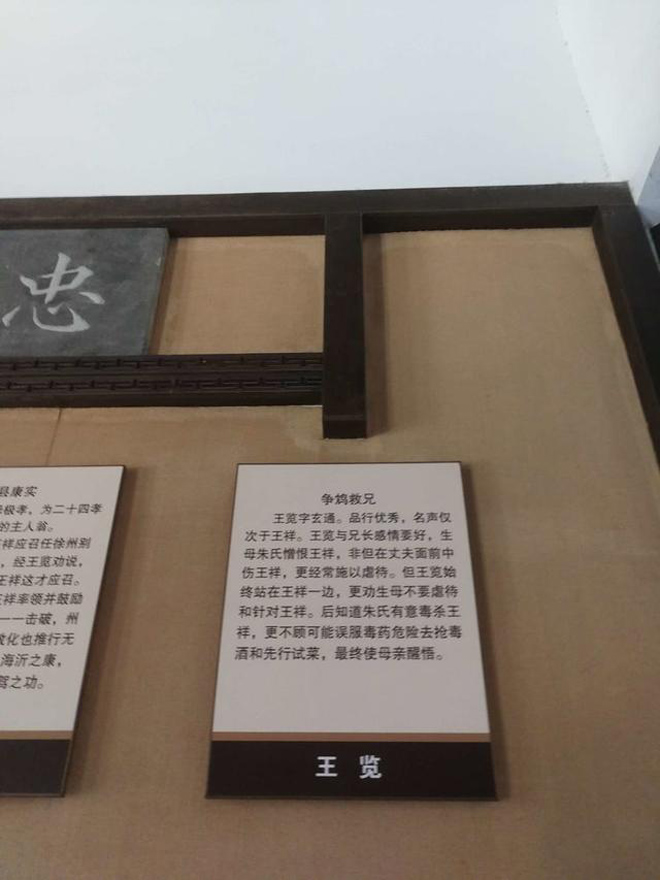 忠
县康实
极孝，为二十四孝
的主人翁。
祥应召任徐州别
，经王览劝说，
王祥这才应召。
祥率领并鼓励
一一击破，州
化也推行无
海沂之康，
驾之功。
争鸩救兄
王览字玄通。品行优秀，名声仅
次于王祥。王览与兄长感情要好，生
母朱氏憎恨王祥，非但在丈夫面前中
伤王祥，更经常施以虐待。但王览始
终站在王祥一边，更劝生母不要虐待
和针对王祥。后知道朱氏有意毒杀王
祥，更不顾可能误服毒药危险去抢毒
酒和先行试菜，最终使母亲醒悟。
王览